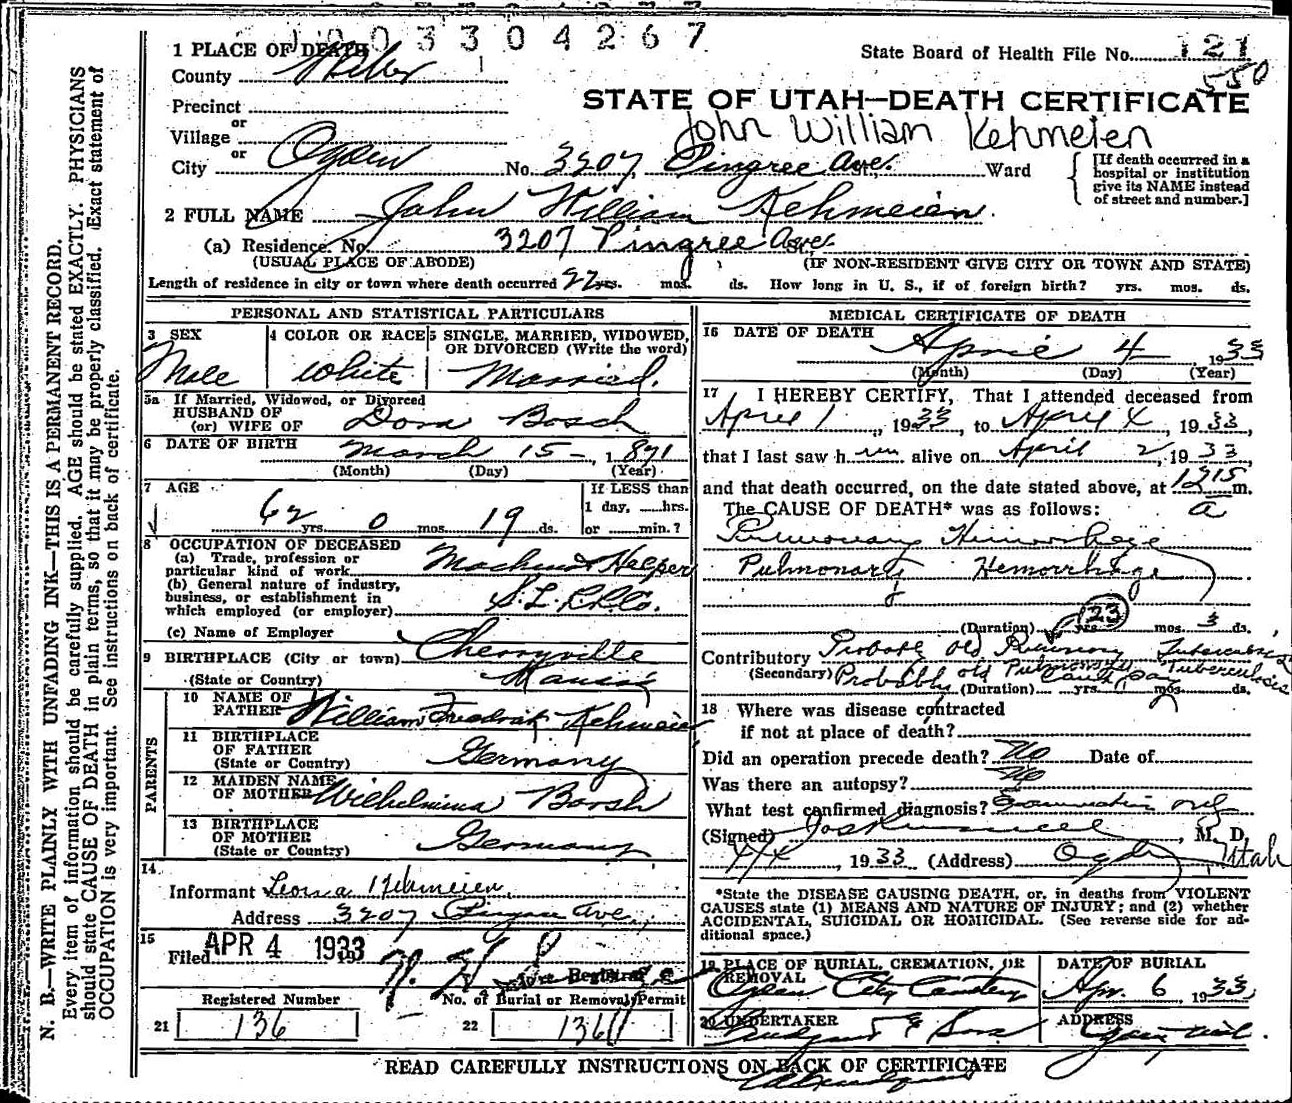 1 0 0 3 3 0 4 2 6 7
1 PLACE OF DEATH
State Board of Health File No. 121
550
County Weber
STATE OF UTAH—DEATH CERTIFICATE
Precinct
John William Kehmeien
or
Village
or
City Ogden No. 3207 Pingree Ave. St., Ward
[If death occurred in a
hospital or institution
give its NAME instead
of street and number.]
2 FULL NAME John William Kehmeien.
(a) Residence. No. 3207 Pingree Ave
(USUAL PLACE OF ABODE)
(IF NON-RESIDENT GIVE CITY OR TOWN AND STATE)
Length of residence in city or town where death occurred 22 yrs. mos. ds. How long in U. S., if of foreign birth? yrs. mos. ds.
PERSONAL AND STATISTICAL PARTICULARS
3 SEX
Male
4 COLOR OR RACE
White
5 SINGLE, MARRIED, WIDOWED,
OR DIVORCED (Write the word)
Married.
5a If Married, Widowed, or Divorced
HUSBAND OF
(or) WIFE OF Dora Bosch
6 DATE OF BIRTH March 15 - 1871
(Month) (Day) (Year)
7 AGE
62 yrs. 0 mos. 19 ds.
If LESS than
1 day, ....hrs.
or ....min.?
8 OCCUPATION OF DECEASED
(a) Trade, profession or
particular kind of work Machinist Helper
(b) General nature of industry,
business, or establishment in
which employed (or employer)
(c) Name of Employer
9 BIRTHPLACE (City or town) Cherryville
(State or Country) Kansas
PARENTS
10 NAME OF
FATHER William Fredrick Kehmeier
11 BIRTHPLACE
OF FATHER
(State or Country) Germany
12 MAIDEN NAME
OF MOTHER Wilhelmina Borsh
13 BIRTHPLACE
OF MOTHER
(State or Country) Germany
14
Informant Leona Kehmeien
Address 3207 Pingree Ave.
15
Filed APR 4 1933
Registrar
Registered Number
21 136
No. of Burial or Removal Permit
22 136
MEDICAL CERTIFICATE OF DEATH
16 DATE OF DEATH
April 4, 1933
(Month) (Day) (Year)
17 I HEREBY CERTIFY, That I attended deceased from
April 1, 1933, to April 4, 1933,
that I last saw him alive on April 2, 1933,
and that death occurred, on the date stated above, at 1215 a m.
The CAUSE OF DEATH* was as follows:
Pulmonary Hemorrhage
Pulmonary Hemorrhage
(Duration) yrs. 23 mos. 3 ds.
Contributory Probable old Pulmonary Tuberculosis
(Secondary) Probably old Pulmonary Tuberculosis
Can't say
(Duration) yrs. mos. ds.
18 Where was disease contracted
if not at place of death?
Did an operation precede death? No Date of
Was there an autopsy? No
What test confirmed diagnosis? Examination only
(Signed) M. D.
1933 (Address) Ogden, Utah
*State the DISEASE CAUSING DEATH, or, in deaths from VIOLENT
CAUSES state (1) MEANS AND NATURE OF INJURY; and (2) whether
ACCIDENTAL, SUICIDAL OR HOMICIDAL. (See reverse side for ad-
ditional space.)
19 PLACE OF BURIAL, CREMATION, OR
REMOVAL
Ogden City Cemetery
DATE OF BURIAL
Apr. 6 1933
20 UNDERTAKER
& Sons
ADDRESS
Ogden Utah.
READ CAREFULLY INSTRUCTIONS ON BACK OF CERTIFICATE
N. B.—WRITE PLAINLY WITH UNFADING INK—THIS IS A PERMANENT RECORD.
Every item of information should be carefully supplied. AGE should be stated EXACTLY. PHYSICIANS
should state CAUSE OF DEATH in plain terms, so that it may be properly classified. Exact statement of
OCCUPATION is very important. See instructions on back of certificate.